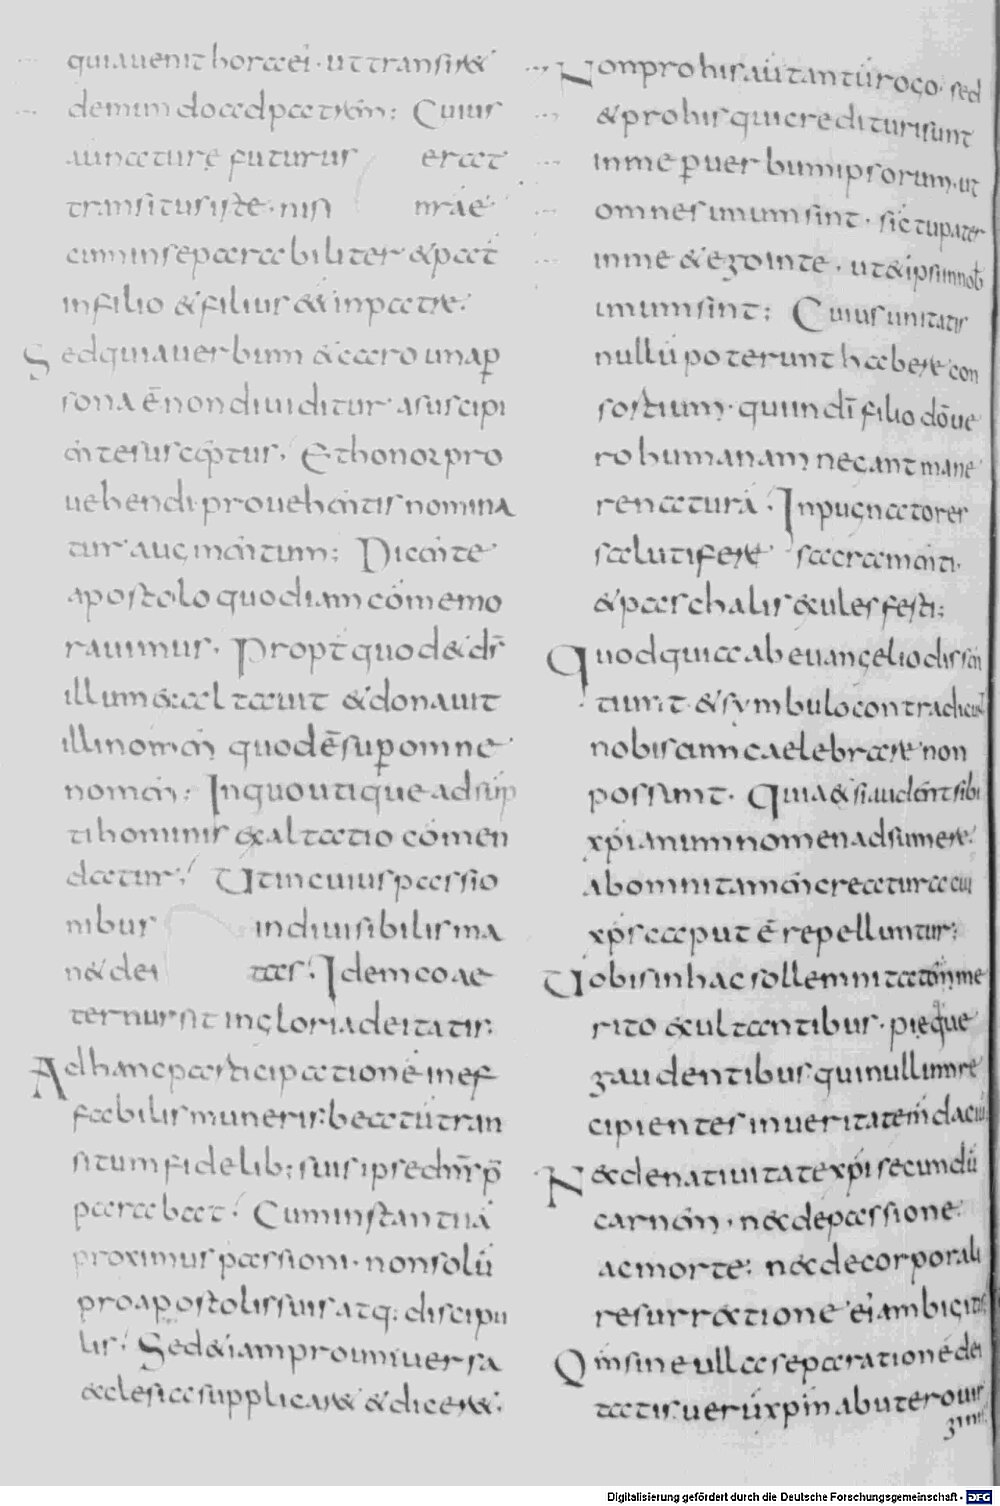 quia uenit hora ei · ut transir&
de mundo ad patrem : Cuius
au natur&#281; futurus erat
transitus iste · nisi nr&#257;e
cum inseparabiliter & pat
in filio & filius &in patre ·
Sed quia uerbum & caro una p
sona ē non diuiditur a suscipi
ente susceptus · Et honor pro
uehendi · prouehentis nomina
tur augmentum : Dicente
apostolo quod iam cōmemo
rauimus · Propt quod & ds̄
illum exaltauit & donauit
illi nomen quod ē sup omne
nomen : In quo utique adsūp
ti hominis exaltatio cōmen
datur · Ut in cuius passio
nibus indiuisibilis ma
n& dei tas · Idem coae
ternus sit in gloria deitatis :
Ad hanc participationē inef
fabilis muneris : beatū tran
situm fidelib; suis ipse dn̄s p̄
parabat · Cum instanti iā
proximus passioni · non solū
pro apostolis suis atq; discipu
lis · Sed &iam pro uniuersa
ecclesia supplicar& & dicer& ·
Non pro his aūt tantū rogo · sed
& pro his qui credituri sunt
in me p uerbum ipsorum · ut
omnes unum sint · sic tu pater
in me & ego in te · ut & ipsi in nob
unum sint : Cuius unitatis
nullū poterunt habere con
sortium · qui in dī filio dō ue
ro humanam negant mane
re naturā · Inpugnatores
salutifere sacramenti ·
& paschalis exules festi :
Quod quia ab euangelio dissen
tiunt · & symbulo contradicunt
nobiscum caelebrare non
possunt · Quia &si audent sibi
xp̄ianum nomen adsumere ·
ab omni tamen creatura cui
xp̄s caput ē repelluntur ·
Uobis in hac sollemnitatem me
rito exultantibus · pieque
gaudentibus qui nullum re
cipientes in ueritate mendaciū
Nec de natiuitate xp̄i secundū
carnem · nec de passione
ac morte : nec de corporali
resurrectione ei ambigitis
Qm̄ sine ulla separatione dei
tatis : uerū xp̄m ab utero uir
ginis
Digitalisierung gefördert durch die Deutsche Forschungsgemeinschaft - DFG